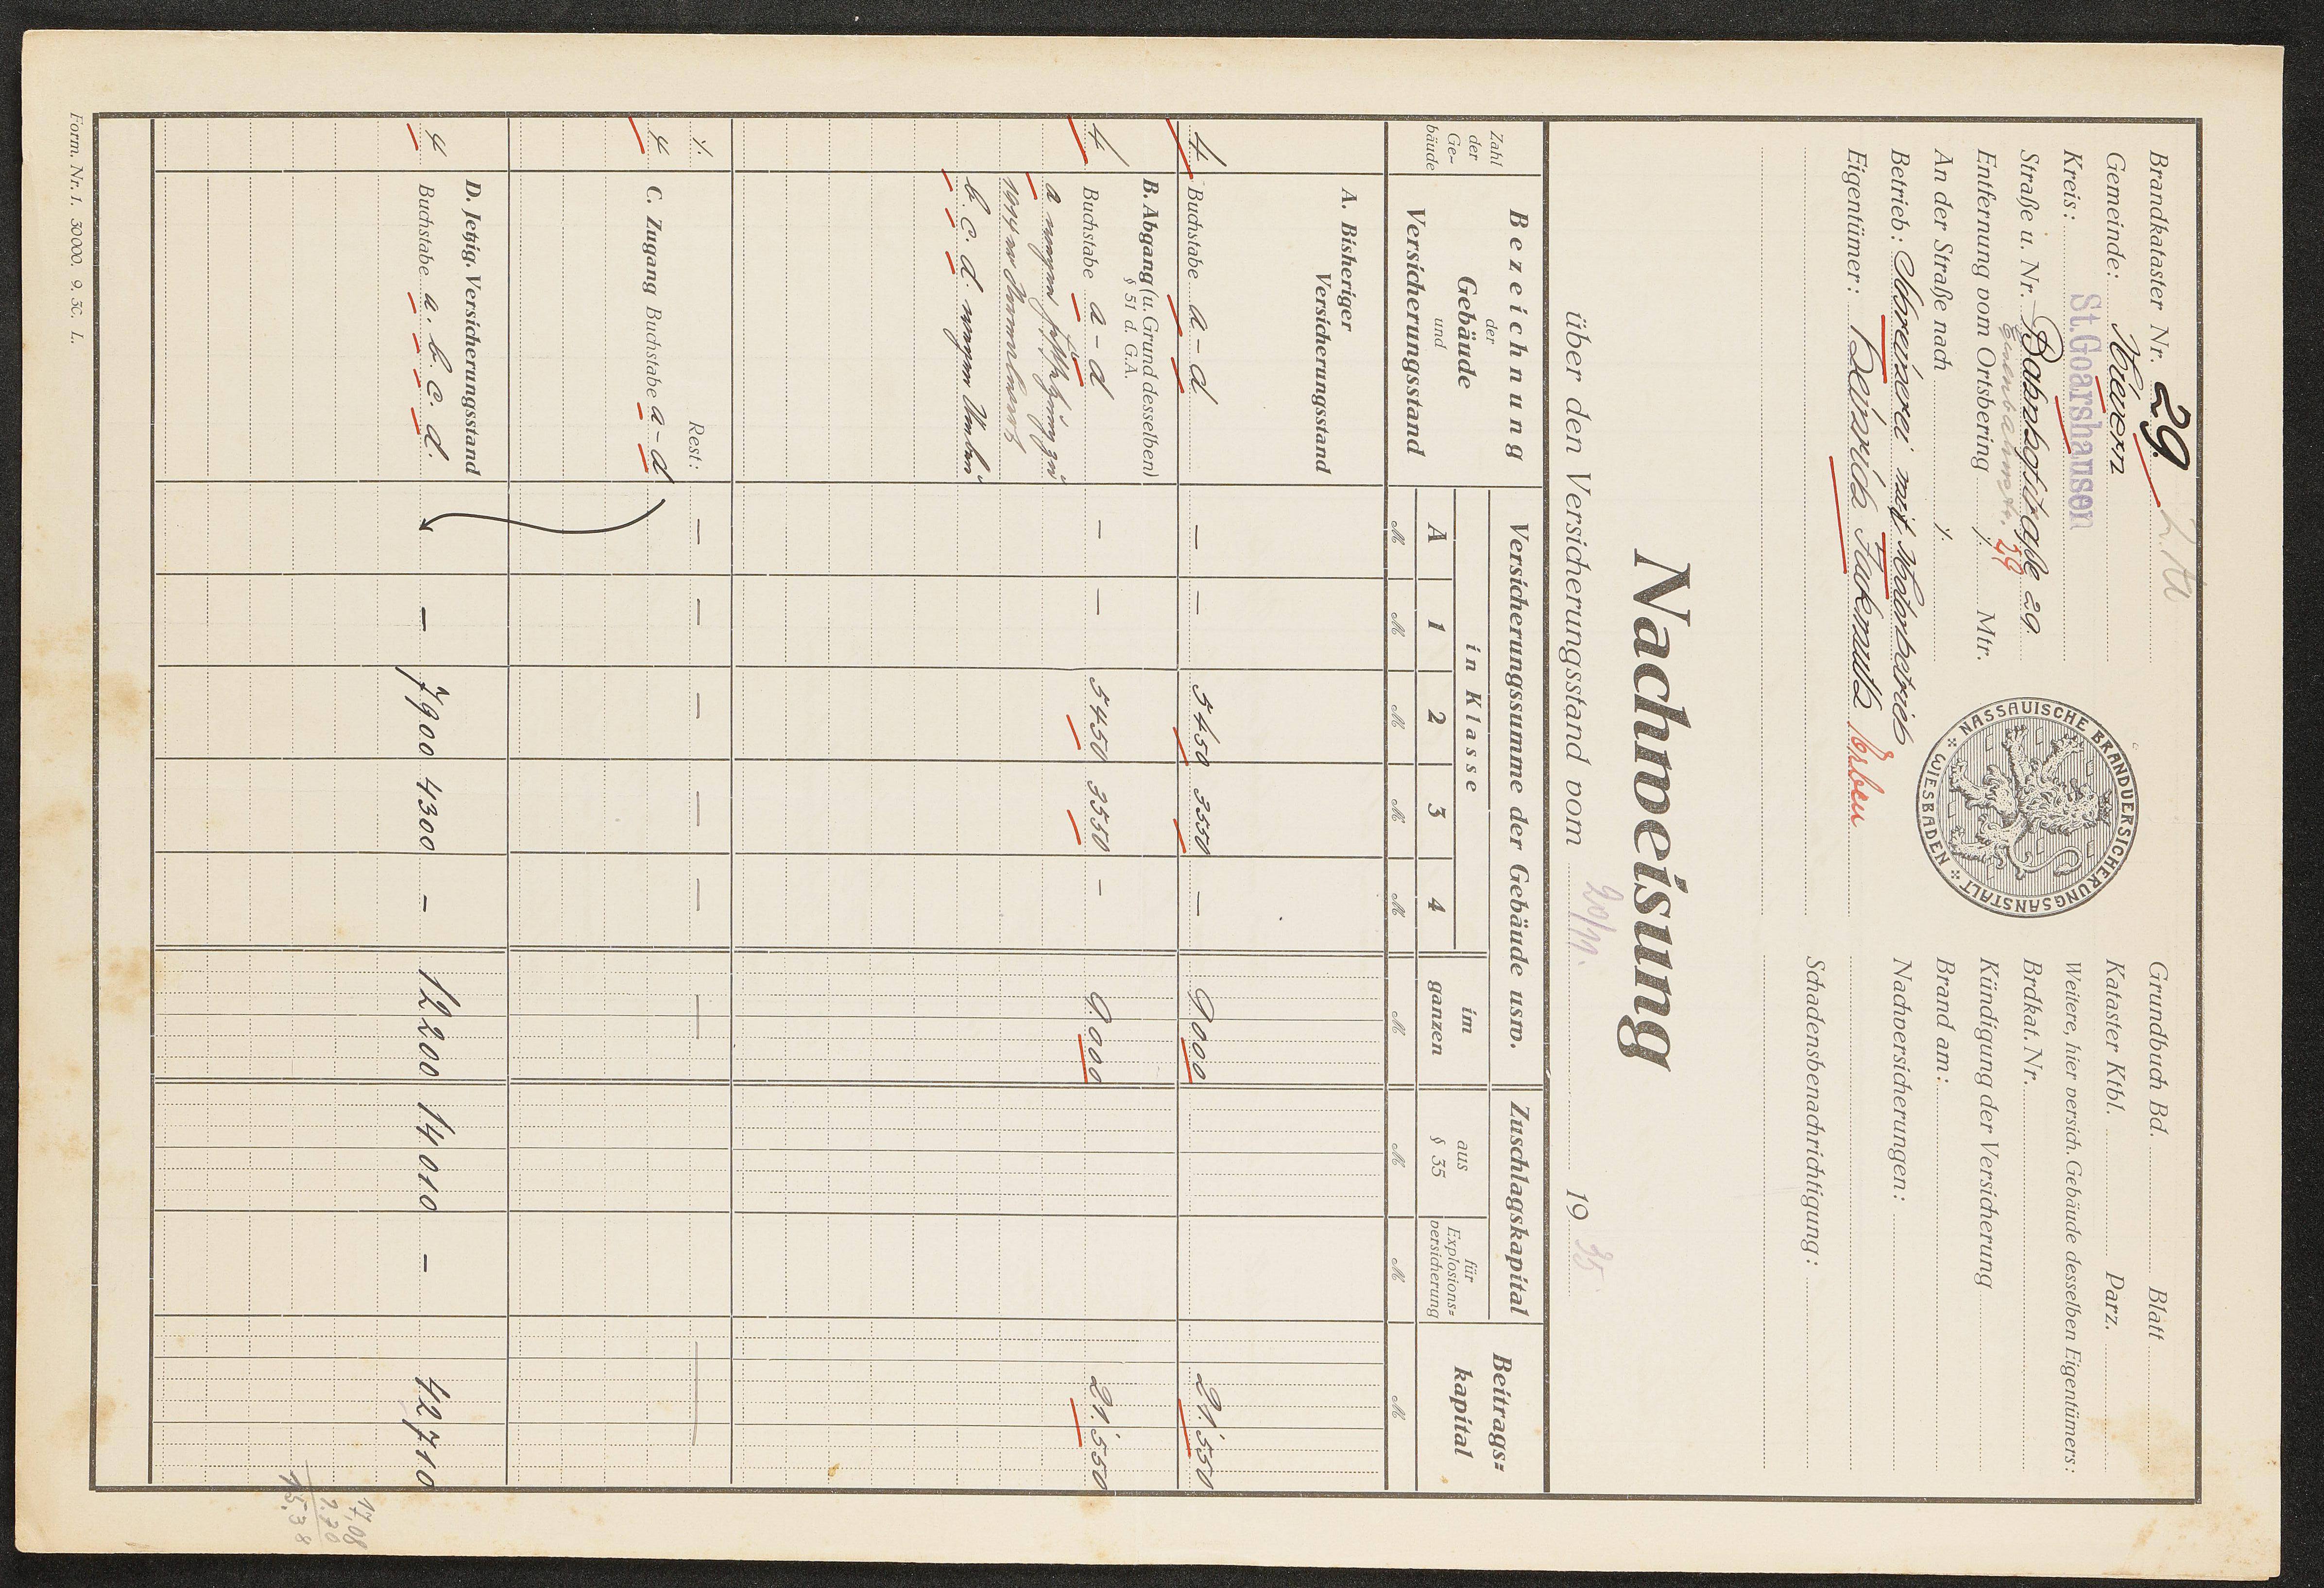 Brandkataster Nr. 29.
Gemeinde: Kievern
Kreis: St. Goarshausen
Straße u. Nr. Bahnhofstraße 29.
29
Entfernung vom Ortsbering ./. Mtr.
An der Straße nach ./.
Betrieb: Schreinerei mit Kraftbetrieb
Eigentümer: Heinrich Erben
NASSAUISCHE BRANDVERSICHERUNGSANSTALT
WIESBADEN
Grundbuch Bd. Blatt
Kataster Ktbl. Parz.
Weitere, hier versich. Gebäude desselben Eigentümers:
Brdkat. Nr.
Kündigung der Versicherung
Brand am:
Nachversicherungen:
Schadensbenachrichtigung:
Nachweisung
über den Versicherungsstand vom 20/11. 1935
Zahl der Ge-bäude
Bezeichnung
der
Gebäude
und
Versicherungsstand
Versicherungssumme der Gebäude usw.
in Klasse
A 1 2 3 4
im ganzen
Zuschlagskapital
aus § 35
für Explosions-versicherung
Beitrags-kapital
M M M M M M M M M
A. Bisheriger
Versicherungsstand
4 Buchstabe a-d — — 5450 3550 — 9000 21.550
B. Abgang (u. Grund desselben)
§ 51 d. G.A.
4 Buchstabe a-d — — 5450 3550 — 9.000 21.550
a wegen
1914er
b. c. d. wegen
./. Rest: — — — — — — —
4 C. Zugang Buchstabe a-d
D. Jetzig. Versicherungsstand
4 Buchstabe a. b. c. d. — 7900 4300 — 12200 14010 — 42710
17,08
1.70
15.38
Form. Nr. 1. 30000. 9. 30. L.